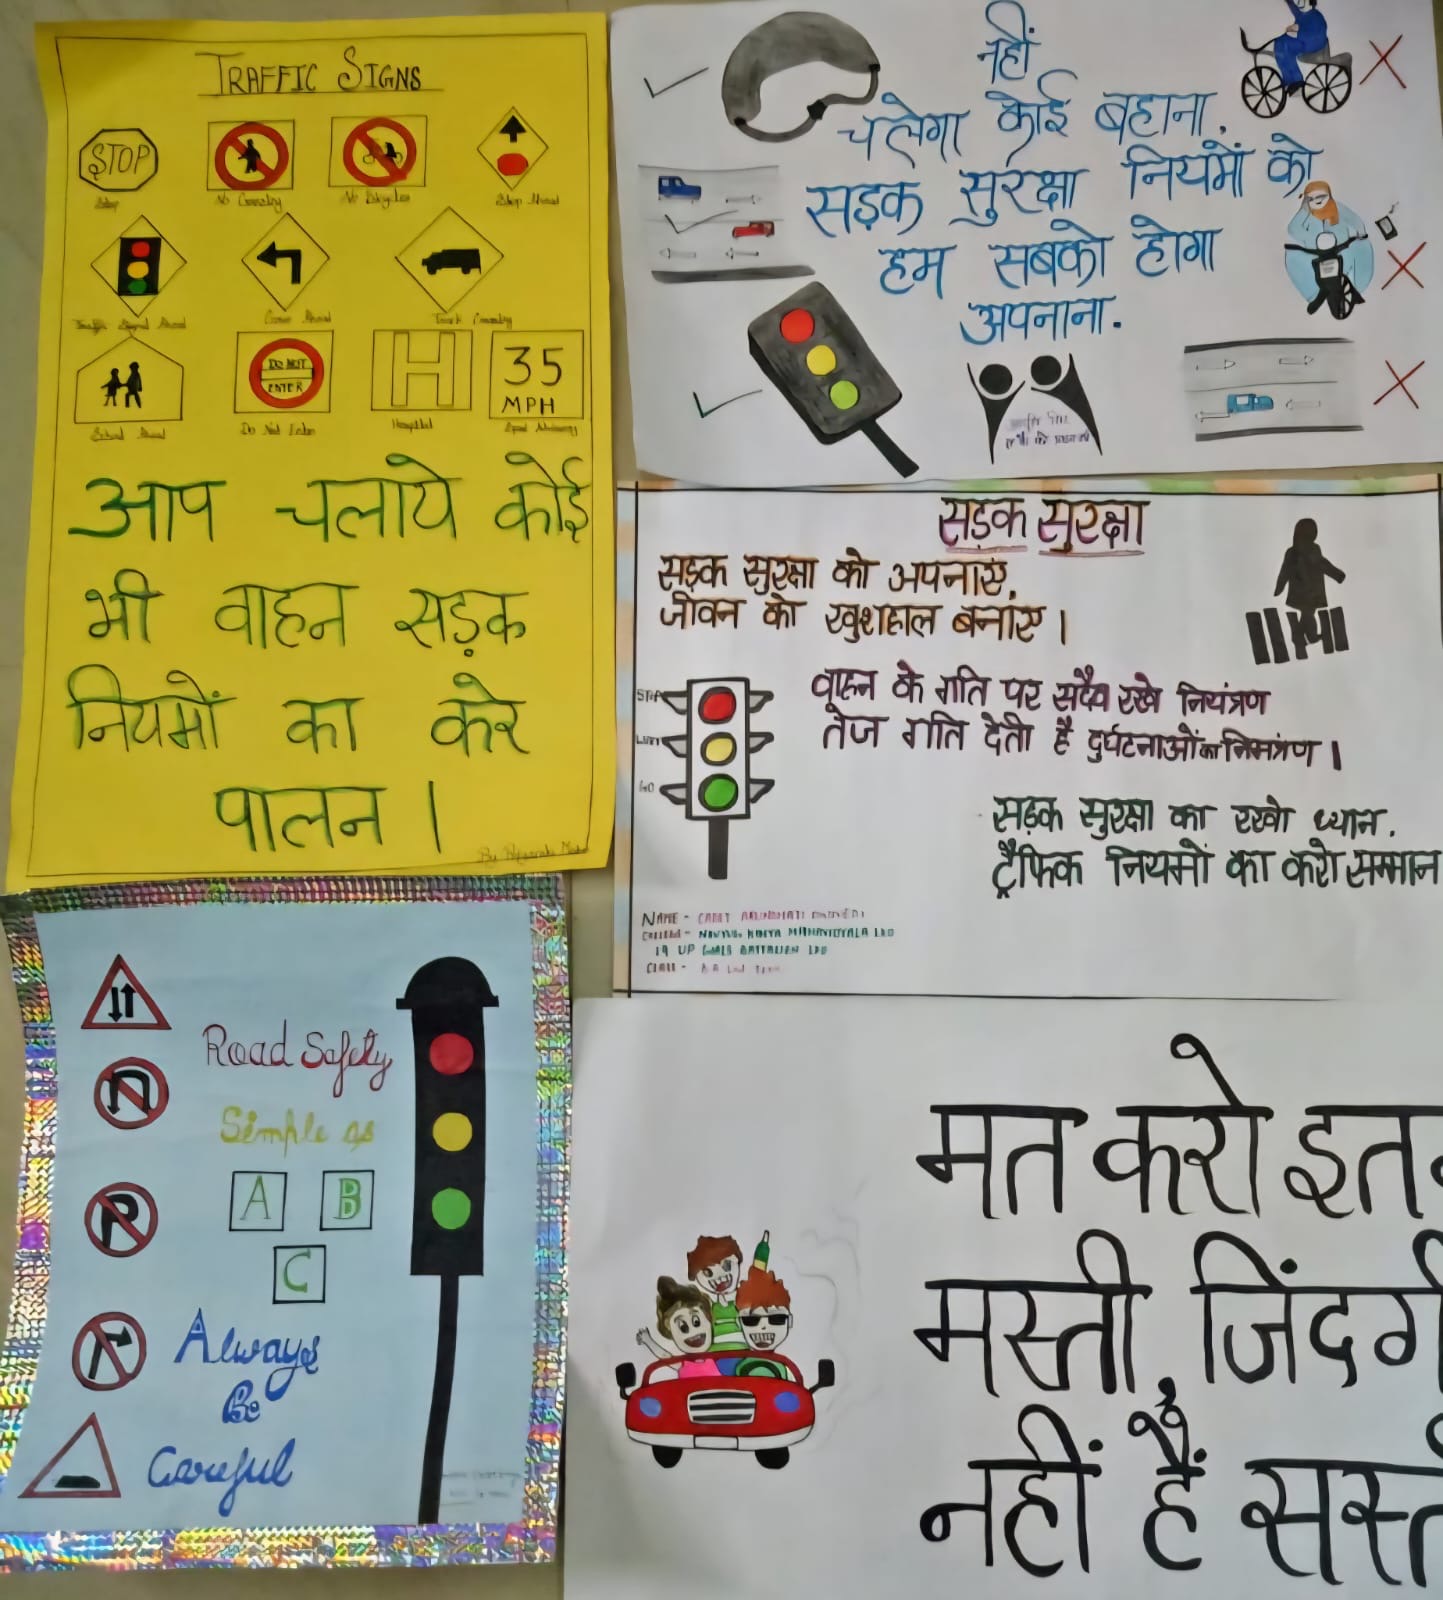 TRAFFIC SIGNS
STOP
Stop
No Crossing
No Bicycles
Stop Ahead
Traffic Signal Ahead
Curve Ahead
Truck Crossing
DO NOT
ENTER
H
35
MPH
School Ahead
Do Not Enter
Hospital
Speed Advisory
आप चलाये कोई
भी वाहन सड़क
नियमों का करे
पालन ।
By
नहीं
चलेगा कोई बहाना,
सड़क सुरक्षा नियमों को
हम सबको होगा
अपनाना.
सड़क सुरक्षा
सड़क सुरक्षा को अपनाएं,
जीवन को खुशहाल बनाए ।
वाहन के गति पर सदैव रखे नियंत्रण
तेज गति देती है दुर्घटनाओं का निमंत्रण ।
सड़क सुरक्षा का रखो ध्यान.
ट्रैफिक नियमों का करो सम्मान
STOP
GO
NAME - CADET ARUNDHATI
COLLEGE - NAVYUG KANYA MAHAVIDYALA LKO
19 UP GIRLS BATTALION LKO
CLASS -
Road Safety
Simple as
A B
C
Always
Be
Careful
P
मत करो इत
मस्ती, जिंदग
नहीं हैं सस्त